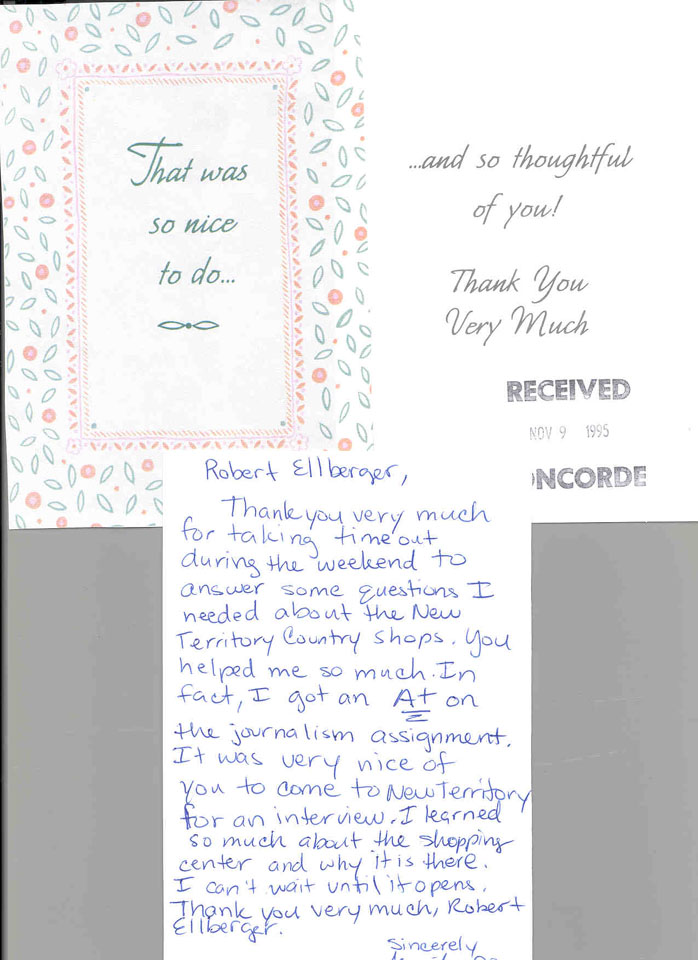 That was
so nice
to do...
...and so thoughtful
of you!
Thank You
Very Much
RECEIVED
NOV 9 1995
ONCORDE
Robert Ellberger,
Thank you very much
for taking time out
during the weekend to
answer some questions I
needed about the New
Territory Country Shops. You
helped me so much. In
fact, I got an A+ on
the journalism assignment.
It was very nice of
you to come to New Territory
for an interview. I learned
so much about the shopping
center and why it is there.
I can't wait until it opens.
Thank you very much, Robert
Ellberger.
Sincerely